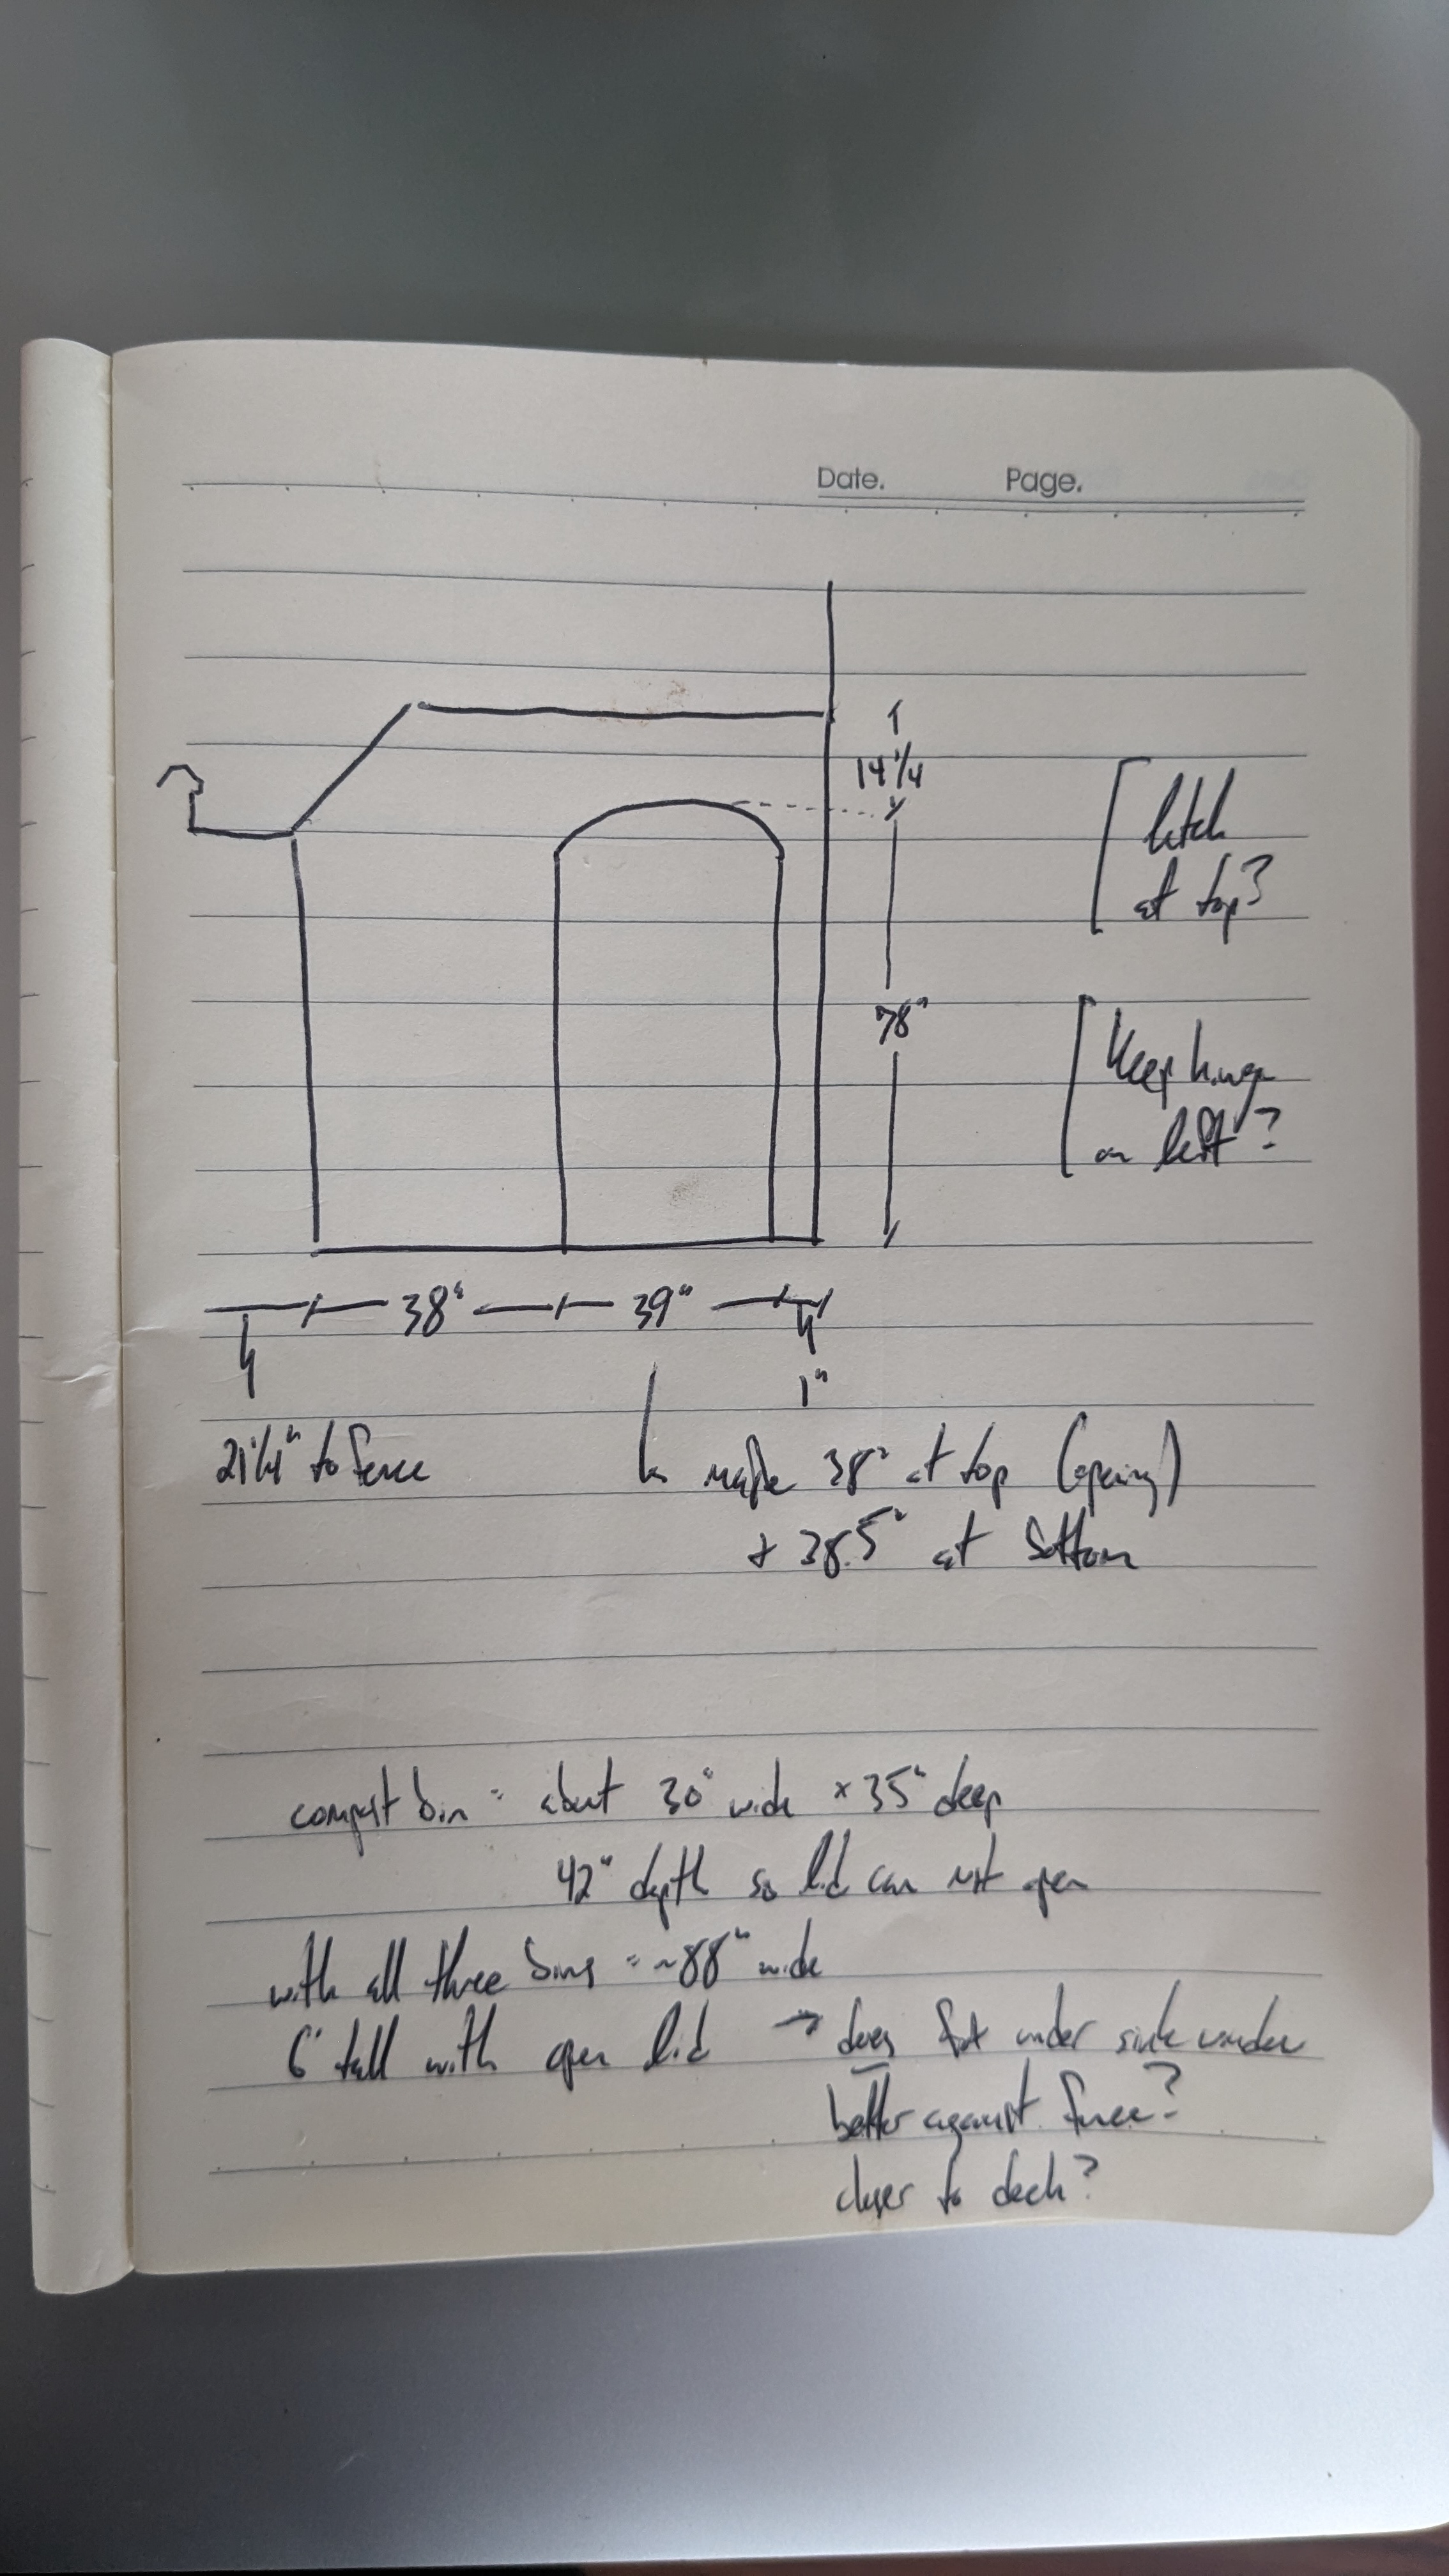 Date. Page.
14 1/4
latch
at top?
78"
Keep hinge
on left?
38" 39"
1"
21 1/4" to fence
maybe 38" at top (opening)
+ 38.5" at bottom
compost bin = about 30" wide x 35" deep
42" depth so lid can open
with all three bins = ~88" wide
6' tall with open lid → does fit under
better against fence?
closer to deck?